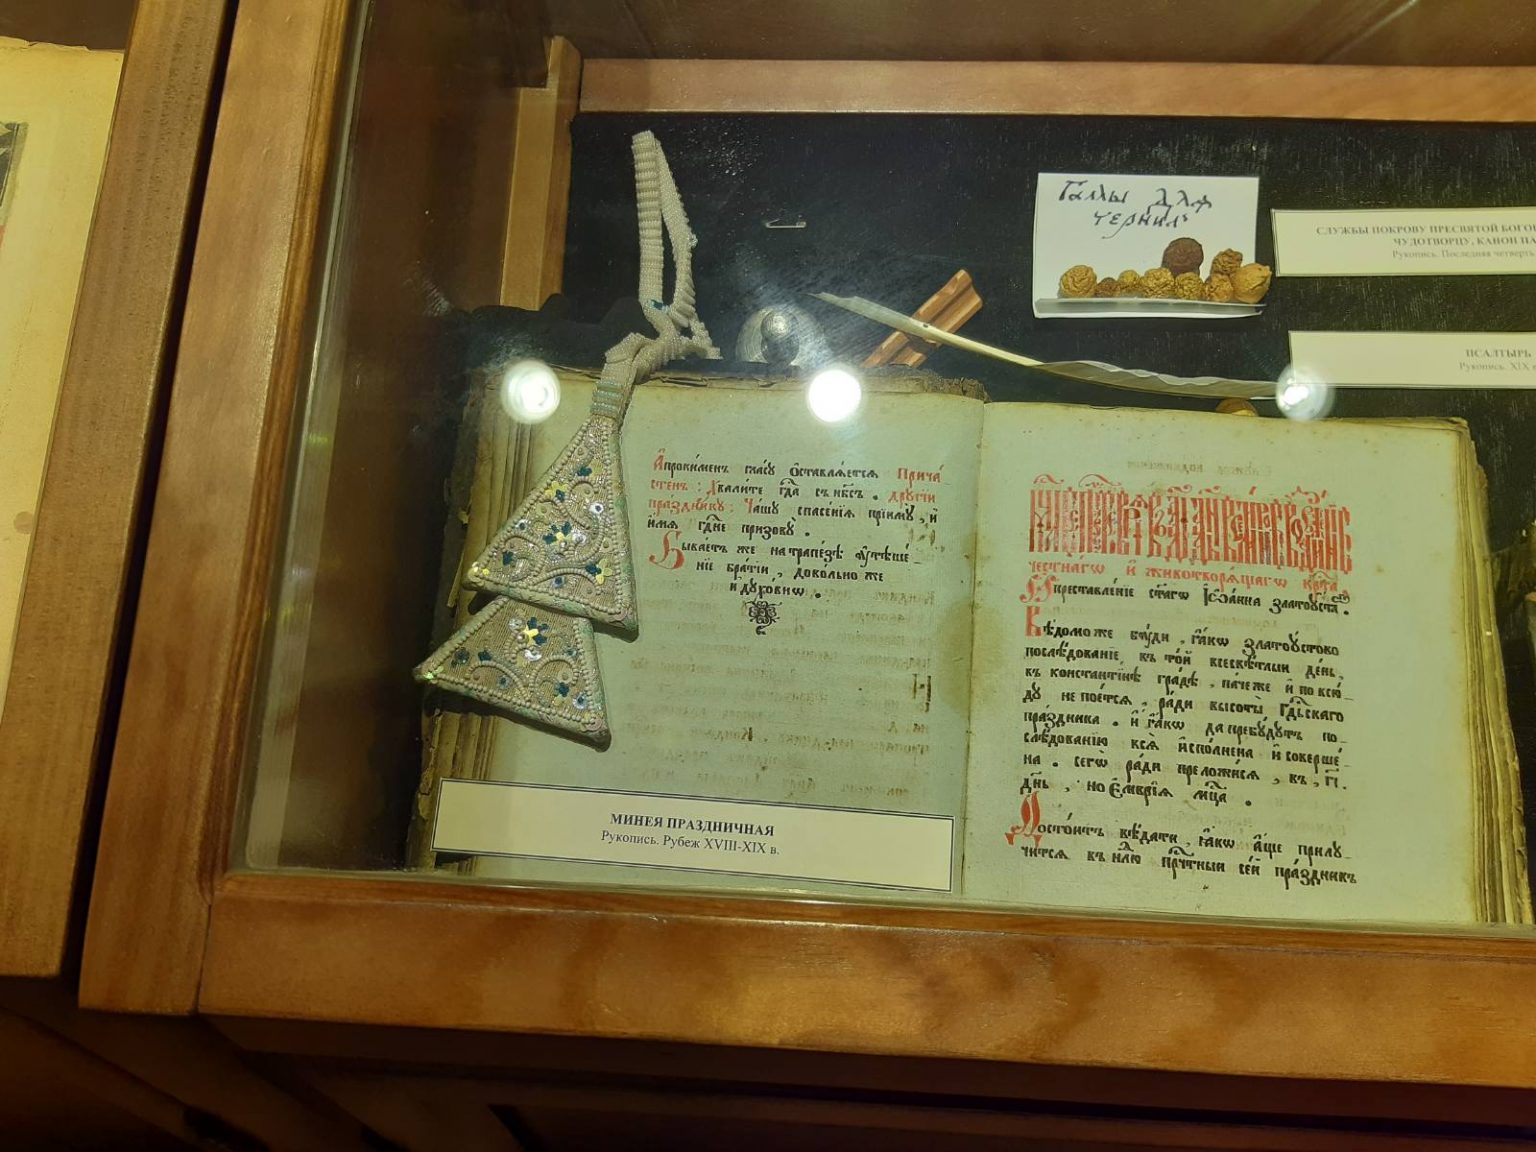 Галлы для
чернилъ
СЛУЖБЫ ПОКРОВУ ПРЕСВЯТОЙ
ЧУДОТВОРЦУ, КАНОН
Рукопись. Последняя четверть
ПСАЛТЫРЬ
Рукопись. XIX
Апрокименъ гласу ѡставлѧетсѧ Прича
стенъ : Хвалите гд҇а съ нб҇съ . дрꙋгїи
праздникꙋ : Чашꙋ спасенїѧ прїимꙋ , и
имѧ гд҇не призовꙋ .
Бываетъ же на трапезѣ ꙋтѣше
нїе братїи , довольно же
и дꙋховнѡ .
МИНЕЯ ПРАЗДНИЧНАЯ
Рукопись. Рубеж XVIII-XIX в.
честнагѡ и животворѧщагѡ
преставленїе ст҃агѡ Іѡанна златоꙋста .
Вѣдомо же бꙋди , ꙗкѡ златоꙋстово
послѣдованїе , въ той всесвѣтлыи день ,
въ константїнѣ градѣ , паче же и по всю
дꙋ не поетсѧ , ради высоты гд҇ьскаго
праздника . и ꙗкѡ да пребꙋдꙋтъ по
слѣдованїю всѧ исполнена и соверше
на . сегѡ ради преложисѧ , въ , гі .
день , ноемврїѧ мц҇а .
Достоитъ вѣдати , ꙗкѡ аще прилꙋ
читсѧ въ нл҃ю сей праздникъ